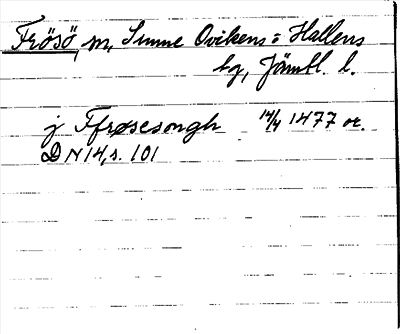 Frösö, m, Sunne Ovikens o Hallens
hg, Jämtl. l.
j Ffrøsesongh 14/4 1477 or.
DN 14, s. 101